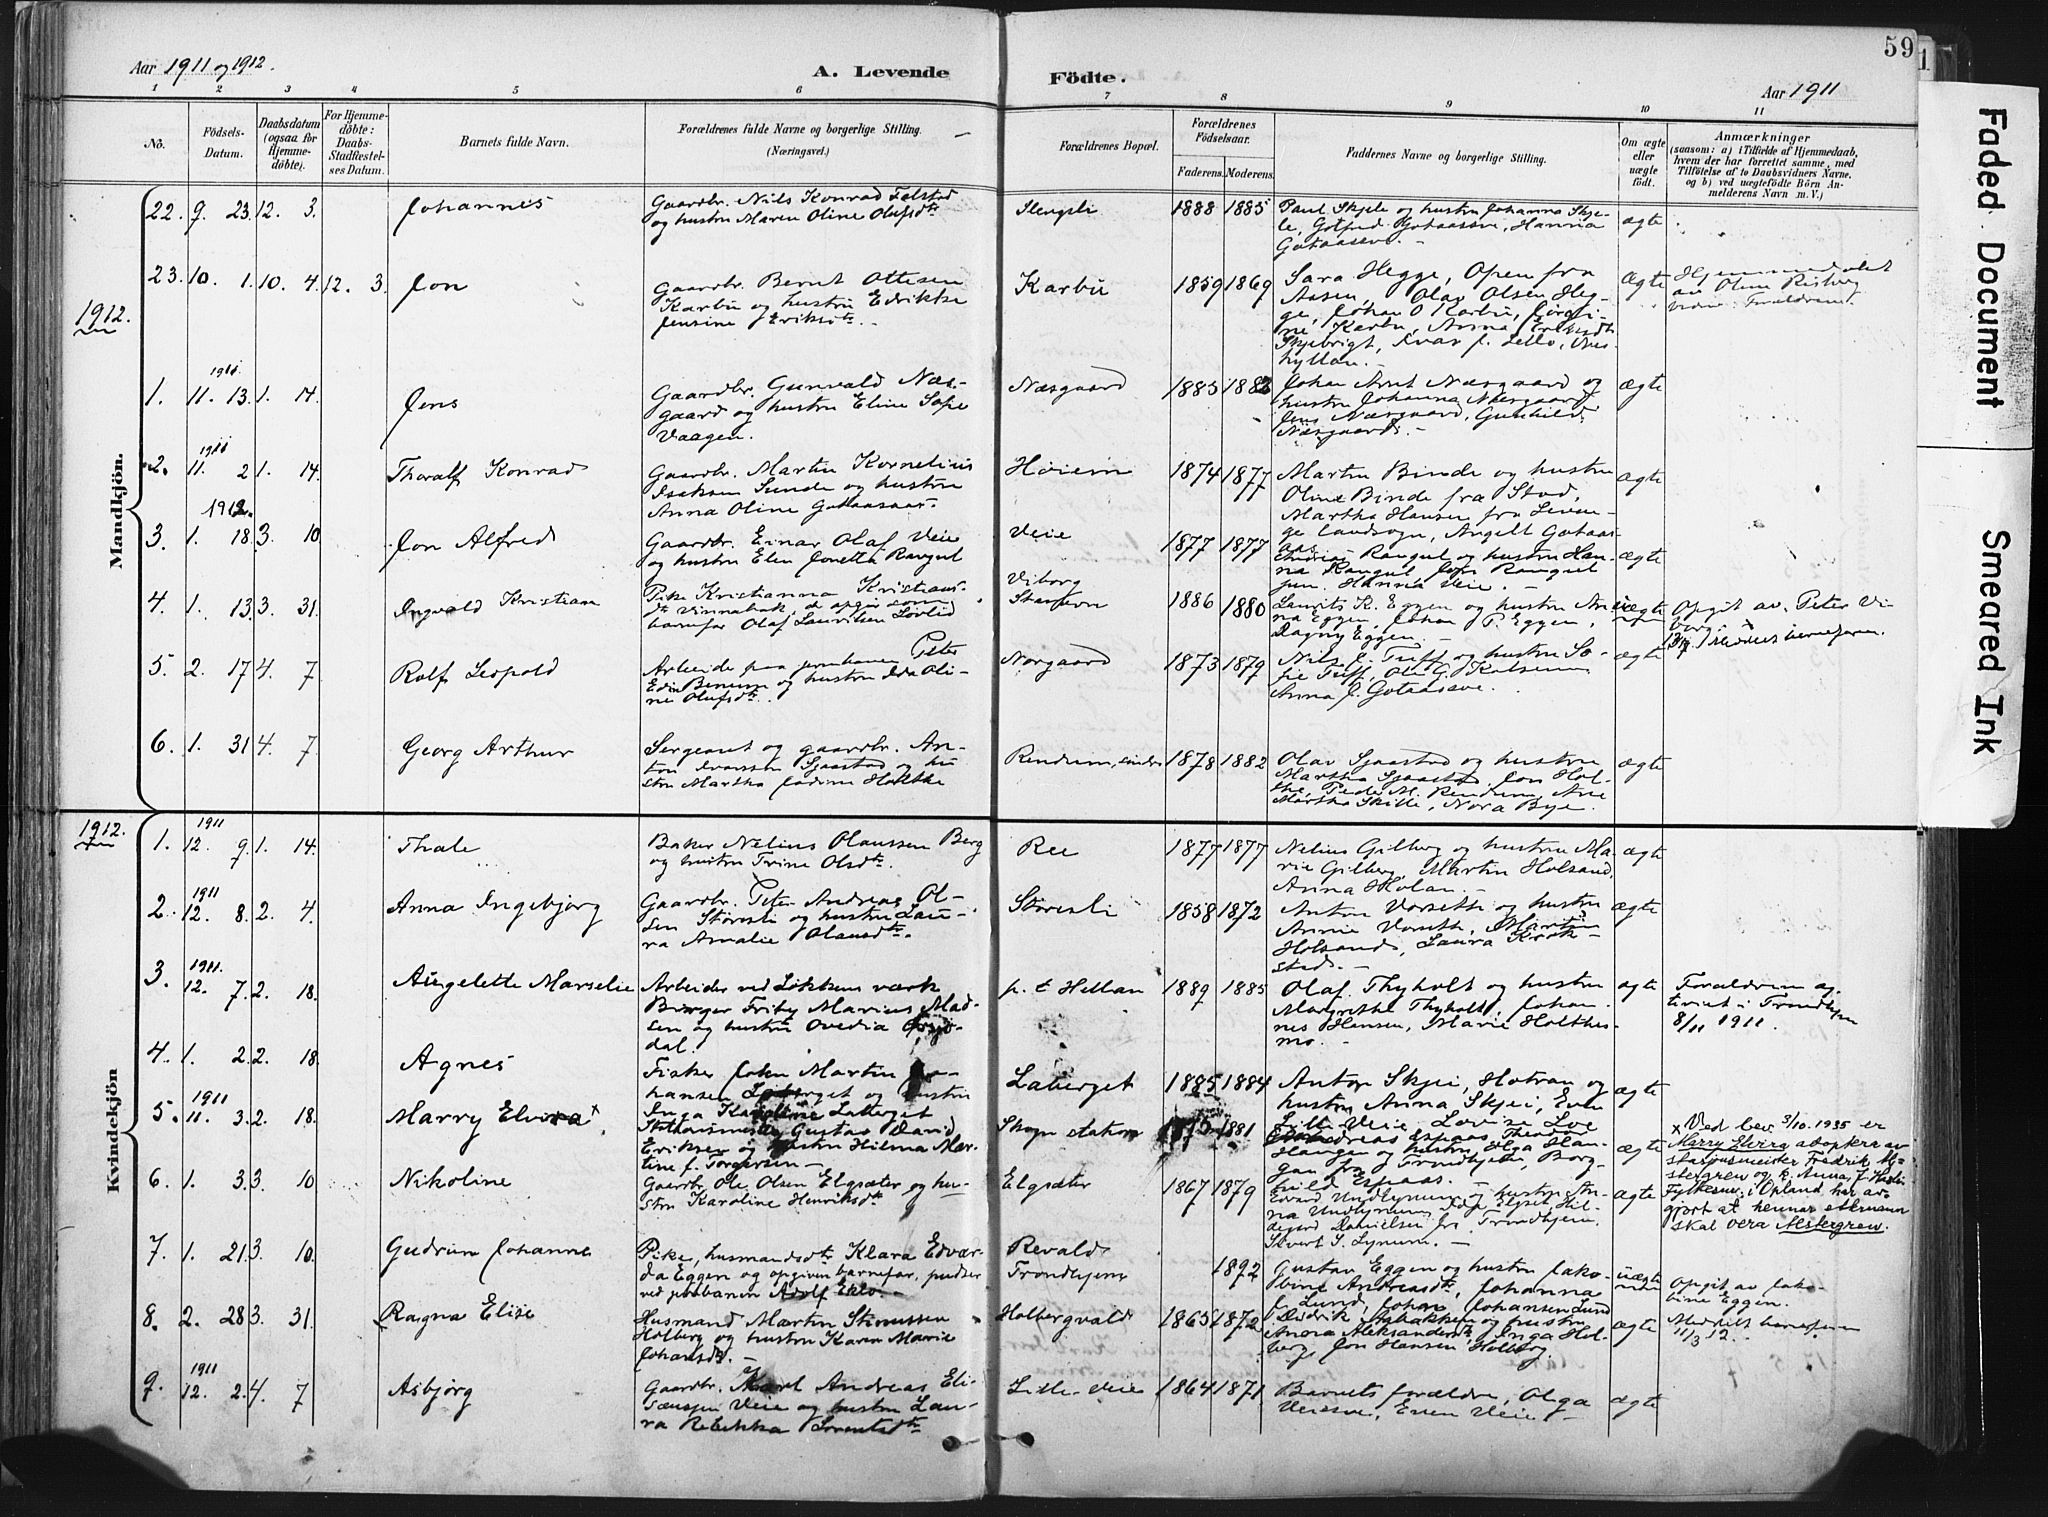 59
Aar 1911 og 1912.
A. Levende
Födte.
Aar 1911
1 2 3 4 5 6 7 8 9 10 11
No.
Födsels-Datum.
Daabsdatum (ogsaa for Hjemmedöbte).
For Hjemmedöbte: Daabs-Stadfæstelses Datum.
Barnets fulde Navn.
Forældrenes fulde Navne og borgerlige Stilling.
(Næringsvei.)
Forældrenes Bopæl.
Forældrenes Födselsaar.
Faderens. Moderens.
Faddernes Navne og borgerlige Stilling.
Om ægte eller uægte födt.
Anmærkninger
(saasom: a) i Tilfælde af Hjemmedaab,
hvem der har forrettet samme, med
Tilföielse af to Daabsvidners Navne,
og b) ved uægtefödte Börn An-
melderens Navn m. V.)
Mandkjön.
22. 9. 23. 12. 3. Johannes
Gaardbr. Nils Konrad Falstad
og hustru Maren Oline Olufsdtr
Slengsli 1888 1885
Paul Skjele og hustru Johanna Skje-
le, Gotfred Gotaasøve, Hanna
Gotaasøve.
ægte
23. 10. 1. 10. 4. 12. 3. Jon
Gaardbr. Bernt Ottesen
Karbu og hustru
Jensine Eriksdtr.
Karbu 1859 1869
Sara Hegge, Open fra
Aasen, Olav Olsen Heg-
ge, Johan O Karbu,
Karbu, Anna
ægte
Hjemmedøbt
av Olum Risberg
1912.
1. 1911 11. 13. 1. 14. Jens
Gaardbr. Gunvald Næs-
gaard og hustru Eline Sofie
Vaagen.
Næsgaard 1885 1882
Johan Arnt Næsgaard og
hustru Johanna Næsgaard
Jens Næsgaard, Gunhild
Næsgaard.
ægte
2. 1911 11. 2 1. 14. Thoralf Konrad
Gaardbr. Martin Kornelius
Isaksen Sunde og hustru
Anna Oline Gotaasaas.
Høiem 1874 1877
Martin Binde og hustru
Oline Binde fra Stod,
Martha Hansen fra Levan-
ger landsogn, Angell Gotaas-
aas
ægte
1912.
3. 1. 18. 3. 10 Jon Alfred
Gaardbr. Einar Olaf Veie
og hustru Elen Jonetta Rangul
Veie 1877 1877
Andreas Rangul og hustru Han-
na Rangul, Jon Rangul
Hanna Veie.
ægte
4. 1. 13. 3. 31. Ingvald Kristian
Pike Kristianna Kristians-
dtr Vinnabak, opgir som
barnefar Olaf Lauritsen Lorlid
Viborg
1886 1880
Laurits K. Eggen og hustru An-
na Eggen, Johan P. Eggen,
Dagny Eggen.
uægte
Opgit av Peter Vi-
borg.
5. 2. 17 4. 7 Rolf Leopold
Arbeider paa jernbanen Peter
Edin Benum og hustru Ida Oli-
ne Olufsdtr.
Norgaard 1873 1879
Nils J. Tuff og hustru So-
fie Tuff, Ole G. Kolsum
Anna J. Gotaasøve.
ægte
6. 1. 31 4. 7 Georg Arthur
Sergeant og gaardbr. An-
ton Ivarsen Sjaastad og hu
stru Martha Holthe
Rendum, søndre 1878 1882
Olav Sjaastad og hustru
Martha Sjaastad, Jon Hol-
the, Peder M. Rendum, Ane
Martha Skille, Nora Bye.
ægte
1912.
Kvindekjön
1. 1911 12. 9 1. 14. Thale
Baker Nelius Olaussen Berg
og hustru Trine Olsdtr.
Ree 1877 1877
Nelius Gilberg og hustru Ma-
rie Gilberg, Martin Holsand,
Anna Holan.
ægte
2. 1911 12. 8. 2. 4. Anna Ingebjørg
Gaardbr. Peter Andreas Ol-
sen Støresli og hustru Lau-
ra Amalie Olausdtr.
Støresli 1858 1872
Anton Vorseth og hustru
Annie Vorseth, Martin
Holsand, Laura Krok-
stad.
ægte
3. 1911. 12. 7. 2. 18. Angelette Marselie
Arbeider ved Løkkens værk
Birger Fritz Marius Mad-
sen og hustru Ovedia
dal.
p. t. Hellan 1889 1885
Olaf Thyholt og hustru
Margrethe Thyholt, Johan-
nes Hansen, Marie Holthes-
mo.
ægte
Forældrene eg-
teviet i Trondhjem
8/11 1911.
4. 1. 2. 2. 18. Agnes
Fisker Johan Martin Jo-
hansen Laberget og hustru
Inga Karoline Laberget
Laberget 1885 1884
Anton Skjei, Hotran og
hustru Anna Skjei, Even
Lille Veie, Lovise Loe
ægte
5. 1911 11. 3. 2. 18. Marry Elvira ×
Stationsmester Gustav David
Eriksen og hustru Hilma Mar-
tine f. Torgersen
Skogn station 1875 1881
Andreas Espaas, Theodor
Haugen og hustru Olga Hau-
gan fra Trondhjem, Borg-
hild Espaas.
ægte
× Ved bev. 3/10.1935 er
Marry Elvira adoptert av
stasjonsmeister Fredrik Al-
stergren og k. Anna, f.
Fylkesm. i Opland har av-
gjort at hennar etternamn
skal vera Alstergren.
6. 1. 3. 3. 10 Nikoline
Gaardbr. Ole Olsen Elgsæter og hu-
stru Karoline Henriksdtr
Elgsæter 1867 1879
Edvard Undlynum og hustru An-
na Undlynum, Elgset, Hil-
degard Danielsen fra Trondhjem,
Sivert S. Lynum.
ægte
7. 1. 21 3. 10. Gudrun Johanne
Pike, husmandsdtr Klara Edvar-
da Eggen og opgiven barnefar, pudser
ved jernbanen Adolf Eklo.
Revald
Trondhjem
1892
Gustav Eggen og hustru Jako-
bine Andreasdtr, Johanna
f. Lund, Johan Johansen Lund
uægte
Opgit av Jako-
bine Eggen.
Meddelt barnefaren
11/3 12.
8. 2. 28 3. 31. Ragna Elise
Husmand Martin Simussen
Holberg og hustru Karen Marie
Johansdtr.
Holbergvald 1865 1872
Didrik Aghakken og hustru
Anora Aleksandersdtr, Inga Hol-
berg, Jon Hansen Holberg.
ægte
9. 1911 12. 2. 4. 7 Asbjørg
Gaardbr. Karl Andreas Eli-
sæussen Veie og hustru Lau-
ra Rebekka Lorentsdtr
Lille-Veie 1864 1871
Barnets forældre, Olga
Veiesve, Even Veie
ægte
Faded Document
Smeared Ink